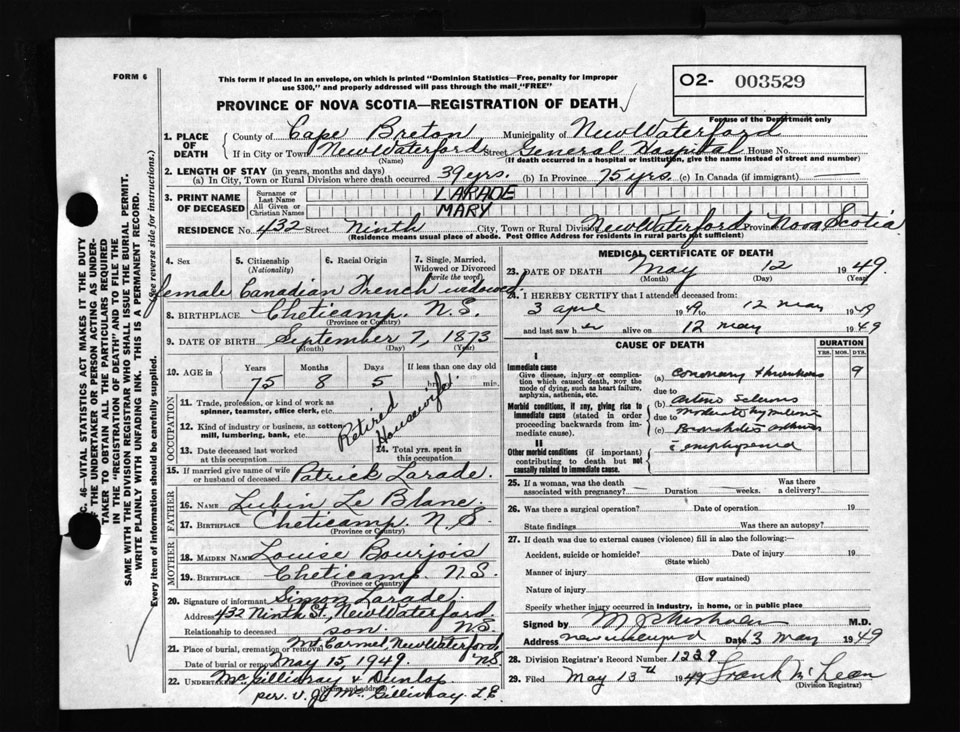 FORM 6
This form if placed in an envelope, on which is printed "Dominion Statistics—Free, penalty for improper
use $300," and properly addressed will pass through the mail "FREE"
O2- 003529
For use of the Department only
PROVINCE OF NOVA SCOTIA—REGISTRATION OF DEATH
1. PLACE OF DEATH County of Cape Breton Municipality of New Waterford
If in City or Town New Waterford Street General Hospital House No.
(Name) (If death occurred in a hospital or institution, give the name instead of street and number)
2. LENGTH OF STAY (in years, months and days)
(a) In City, Town or Rural Division where death occurred 39 yrs. (b) In Province 75 yrs. (c) In Canada (if immigrant) —
3. PRINT NAME OF DECEASED Surname or Last Name LARADE
All Given or Christian Names MARY
RESIDENCE No. 432 Street Ninth City, Town or Rural Division New Waterford Province Nova Scotia
(Residence means usual place of abode. Post Office Address for residents in rural parts not sufficient)
4. Sex 5. Citizenship (Nationality) 6. Racial Origin 7. Single, Married, Widowed or Divorced (write the word)
female Canadian French widowed
8. BIRTHPLACE Cheticamp. N.S.
(Province or Country)
9. DATE OF BIRTH September 7, 1873
(Month) (Day) (Year)
10. AGE in Years Months Days If less than one day old
75 8 5 hrs. min.
OCCUPATION
11. Trade, profession or kind of work as spinner, teamster, office clerk, etc.
12. Kind of industry or business, as cotton mill, lumbering, bank, etc.
Retired Housewife
13. Date deceased last worked at this occupation
14. Total yrs. spent in this occupation
15. If married give name of wife or husband of deceased Patrick Larade.
FATHER
16. NAME Lubin Le Blanc.
17. BIRTHPLACE Cheticamp. N.S.
(Province or Country)
MOTHER
18. MAIDEN NAME Louise Bourjois
19. BIRTHPLACE Cheticamp. N.S.
(Province or Country)
20. Signature of informant Simon Larade.
Address 432 Ninth St., New Waterford, N.S.
Relationship to deceased son.
21. Place of burial, cremation or removal Mt. Carmel, New Waterford, N.S.
Date of burial or removal May 15, 1949.
22. UNDERTAKER McGillivray & Dunlop
(Name and address)
per. V. J. McGillivray L.E
MEDICAL CERTIFICATE OF DEATH
23. DATE OF DEATH May 12 1949.
(Month) (Day) (Year)
24. I HEREBY CERTIFY that I attended deceased from:
3 april 1949 to 12 may 1949
and last saw her alive on 12 may 1949
CAUSE OF DEATH DURATION
YRS. MOS. DYS.
I
Immediate cause
Give disease, injury or complication which caused death, NOT the mode of dying, such as heart failure, asphyxia, asthenia, etc.
(a) Coronary thrombosis 9
due to
Morbid conditions, if any, giving rise to immediate cause (stated in order proceeding backwards from immediate cause).
(b) Arterio Sclerosis
due to
(c) Bronchitis
II
Other morbid conditions (if important) contributing to death but not causally related to immediate cause.
emphysema
25. If a woman, was the death associated with pregnancy? — Duration weeks. Was there a delivery?
26. Was there a surgical operation? Date of operation 19
State findings Was there an autopsy?
27. If death was due to external causes (violence) fill in also the following:—
Accident, suicide or homicide? Date of injury 19
(State which)
Manner of injury
(How sustained)
Nature of injury
Specify whether injury occurred in industry, in home, or in public place
Signed by M.D.
Address Date 13 may 1949
28. Division Registrar's Record Number 1239
29. Filed May 13th 1949 Frank McLean
(Division Registrar)
C. 46—VITAL STATISTICS ACT MAKES IT THE DUTY
OF THE UNDERTAKER OR PERSON ACTING AS UNDERTAKER TO OBTAIN ALL THE PARTICULARS REQUIRED
IN THE "REGISTRATION OF DEATH" AND TO FILE THE
SAME WITH THE DIVISION REGISTRAR WHO SHALL ISSUE THE BURIAL PERMIT.
WRITE PLAINLY WITH UNFADING INK. THIS IS A PERMANENT RECORD.
Every item of information should be carefully supplied. (See reverse side for instructions.)